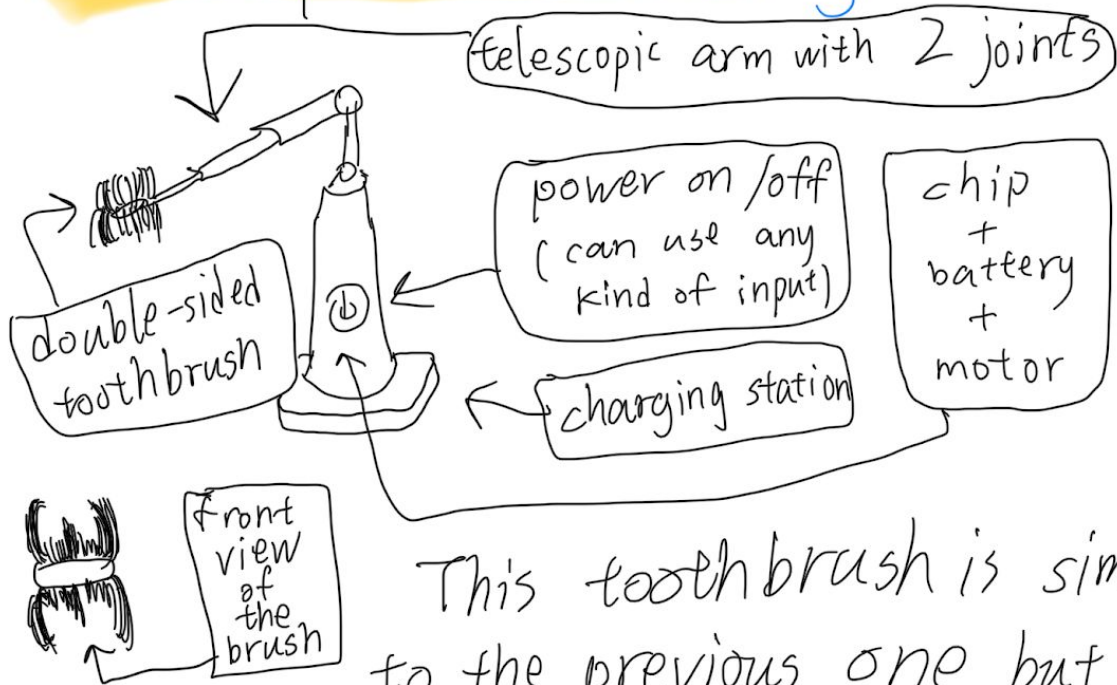 telescopic arm with 2 joints
power on/off
(can use any
kind of input)
chip
+
battery
+
motor
double-sided
toothbrush
charging station
front
view
of
the
brush
This toothbrush is
to the previous one but